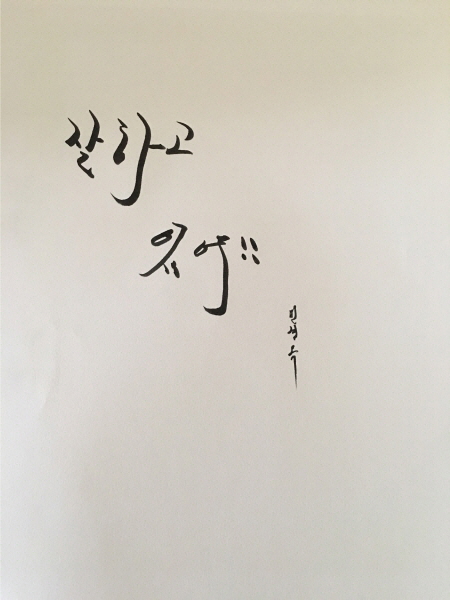 잘하고
있어!!